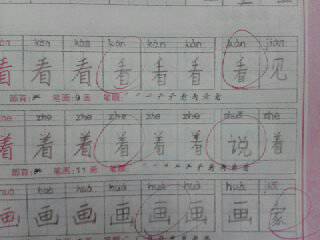 kàn kàn kàn kàn kàn kàn kàn jiàn
看 看 看 看 看 看 看 见
部首: 笔画:9画 笔顺:
zhe zhe zhe zhe zhe zhe shuō zhe
着 着 着 着 着 着 说 着
部首: 笔画:11画 笔顺:
huà huà huà huà huà huà huà
画 画 画 画 画 画 画 家